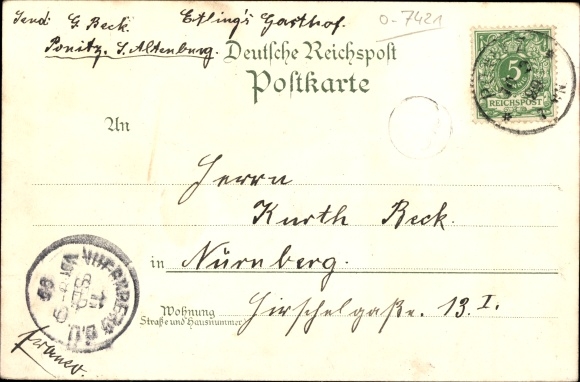 Send G. Beck. Etling's Gasthof. 0-7421
Ponitz. S. Altenburg. Deutsche Reichspost
Postkarte
5
REICHSPOST
An
Herrn
Kurth Beck.
in Nürnberg.
Wohnung Hirschelgaße. 13. I.
Straße und Hausnummer
NUERNBERG
11
SEP
franco.